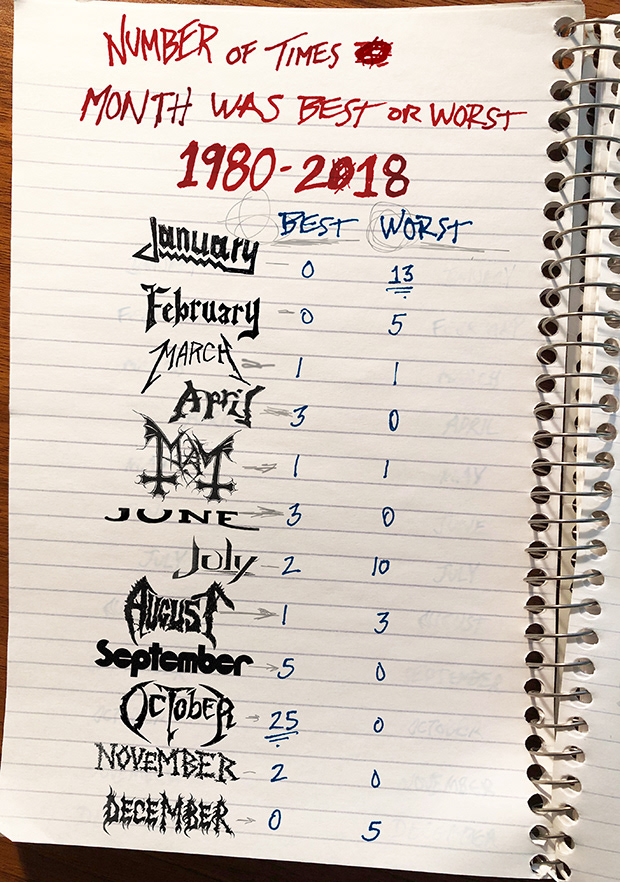 NUMBER OF TIMES
MONTH WAS BEST OR WORST
1980-2018
BEST WORST
January 0 13
February 0 5
MARCH 1 1
April 3 0
MAY 1 1
JUNE 3 0
July 2 10
AUGUST 1 3
September 5 0
OCTOBER 25 0
NOVEMBER 2 0
DECEMBER 0 5